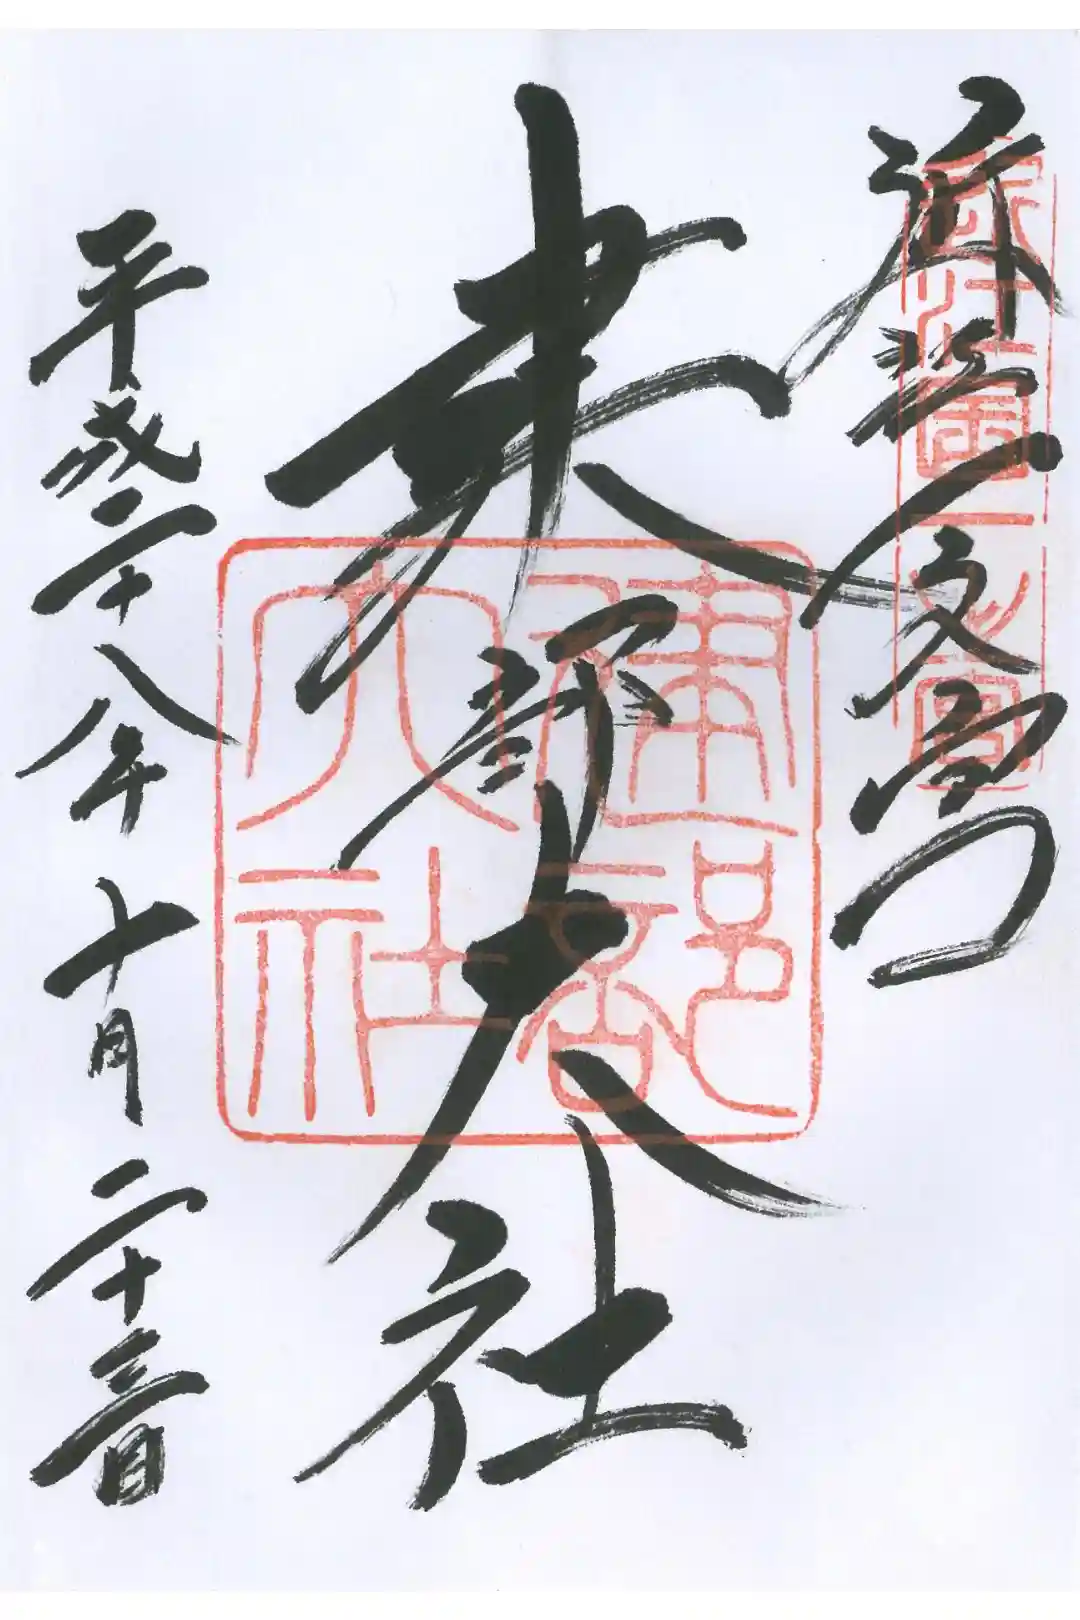 近江一之宮
近江一之宮
建部大社
建部大社
平成二十八年十月二十三日